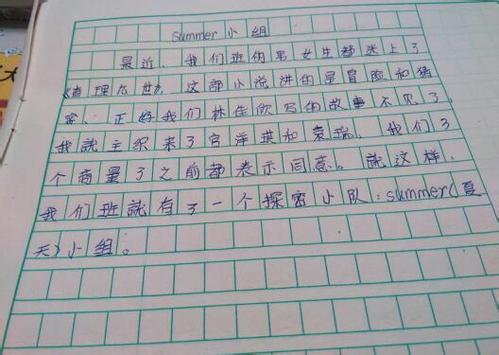 summer小组
最近，我们班的男女生都迷上了
《查理九世》，这部小说讲的是冒险和猜
密，正好我们林佳欣写的故事不见了
我就主织来了宫洋琪和袁瑞，我们3
个商量了之前都表示同意。就这样，
我们班就有了一个探密小队：summer(夏
天)小组。